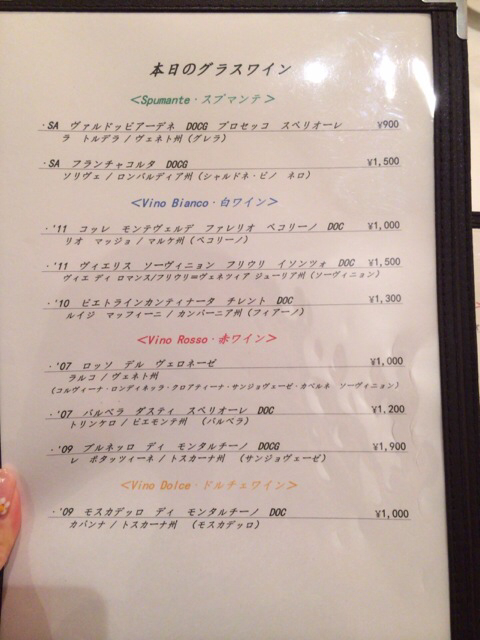 本日のグラスワイン
<Spumante・スプマンテ>
・SA ヴァルドッビアーデネ DOCG プロセッコ スペリオーレ ¥900
ラ トルデラ / ヴェネト州 (グレラ)
・SA フランチャコルタ DOCG ¥1,500
ソリヴェ / ロンバルディア州 (シャルドネ・ピノ ネロ)
<Vino Bianco・白ワイン>
・'11 コッレ モンテヴェルデ ファレリオ ペコリーノ DOC ¥1,000
リオ マッジョ / マルケ州 (ペコリーノ)
・'11 ヴィエリス ソーヴィニョン フリウリ イソンツォ DOC ¥1,500
ヴィエ ディ ロマンス/フリウリ=ヴェネツィア ジューリア州 (ソーヴィニョン)
・'10 ピエトラインカンティナータ チレント DOC ¥1,300
ルイジ マッフィーニ / カンパーニア州 (フィアーノ)
<Vino Rosso・赤ワイン>
・'07 ロッソ デル ヴェロネーゼ ¥1,000
ラルコ / ヴェネト州
(コルヴィーナ・ロンディネッラ・クロアティーナ・サンジョヴェーゼ・カベルネ ソーヴィニョン)
・'07 バルベラ ダスティ スペリオーレ DOC ¥1,200
トリンケロ / ピエモンテ州 (バルベラ)
・'09 ブルネッロ ディ モンタルチーノ DOCG ¥1,900
レ ポタッツィーネ / トスカーナ州 (サンジョヴェーゼ)
<Vino Dolce・ドルチェワイン>
・'09 モスカデッロ ディ モンタルチーノ DOC ¥1,000
カパンナ / トスカーナ州 (モスカデッロ)